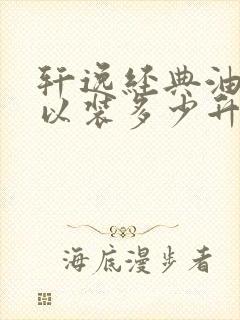 轩逸经典油
以装多少升
海底漫步者